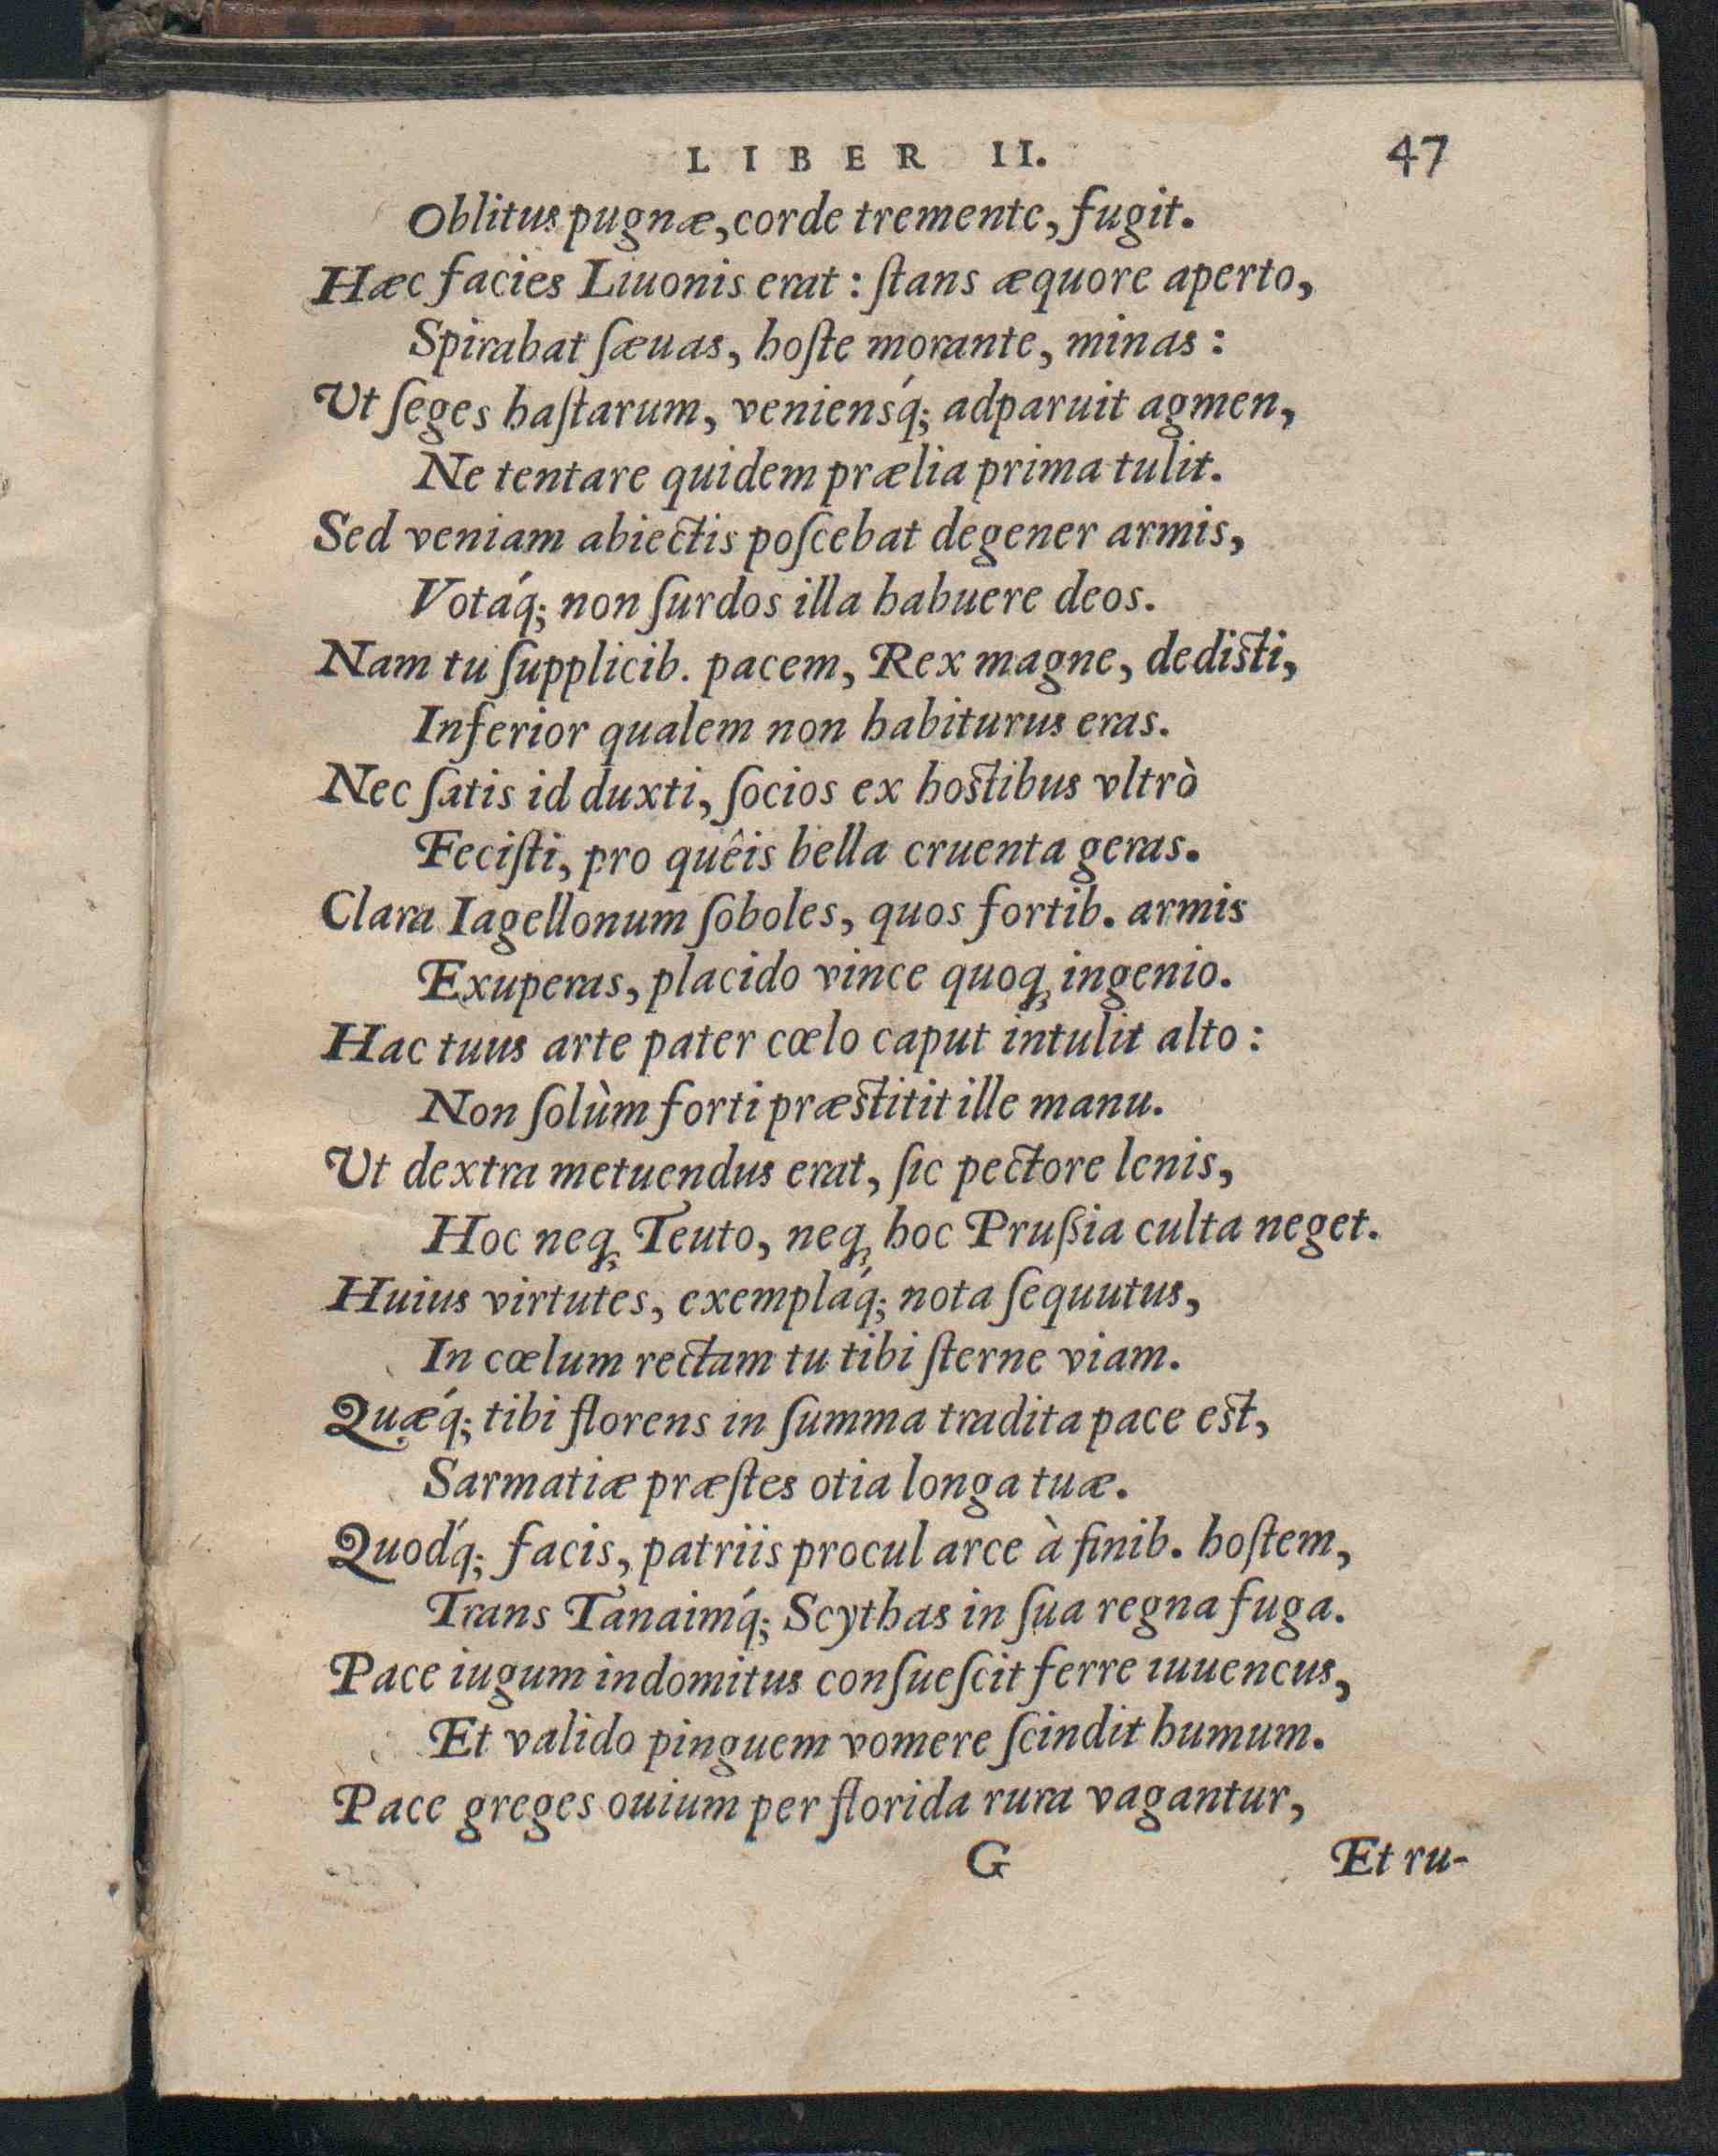 LIBER II. 47
Oblitus pugnæ, corde tremente, fugit.
Hæc facies Liuonis erat: ſtans æquore aperto,
Spirabat ſæuas, hoſte morante, minas:
Ut ſeges haſtarum, veniensq́; adparuit agmen,
Ne tentare quidem prælia prima tulit.
Sed veniam abiectis poſcebat degener armis,
Votáq; non ſurdos illa habuere deos.
Nam tu ſupplicib. pacem, Rex magne, dedisti,
Inferior qualem non habiturus eras.
Nec ſatis id duxti, ſocios ex hostibus vltrò
Feciſti, pro quêis bella cruenta geras.
Clara Iagellonum ſoboles, quos fortib. armis
Exuperas, placido vince quoq; ingenio.
Hac tuus arte pater cœlo caput intulit alto:
Non ſolùm forti præstitit ille manu.
Ut dextra metuendus erat, ſic pectore lenis,
Hoc neq; Teuto, neq; hoc Pruſsia culta neget.
Huius virtutes, exempláq; nota ſequutus,
In cœlum rectam tu tibi ſterne viam.
Quæq́; tibi florens in ſumma tradita pace est,
Sarmatiæ præſtes otia longa tuæ.
Quodq́; facis, patriis procul arce à finib. hoſtem,
Trans Tanaimq́; Scythas in ſua regna fuga.
Pace iugum indomitus conſueſcit ferre iuuencus,
Et valido pinguem vomere ſcindit humum.
Pace greges ouium per florida rura vagantur,
G Et ru-